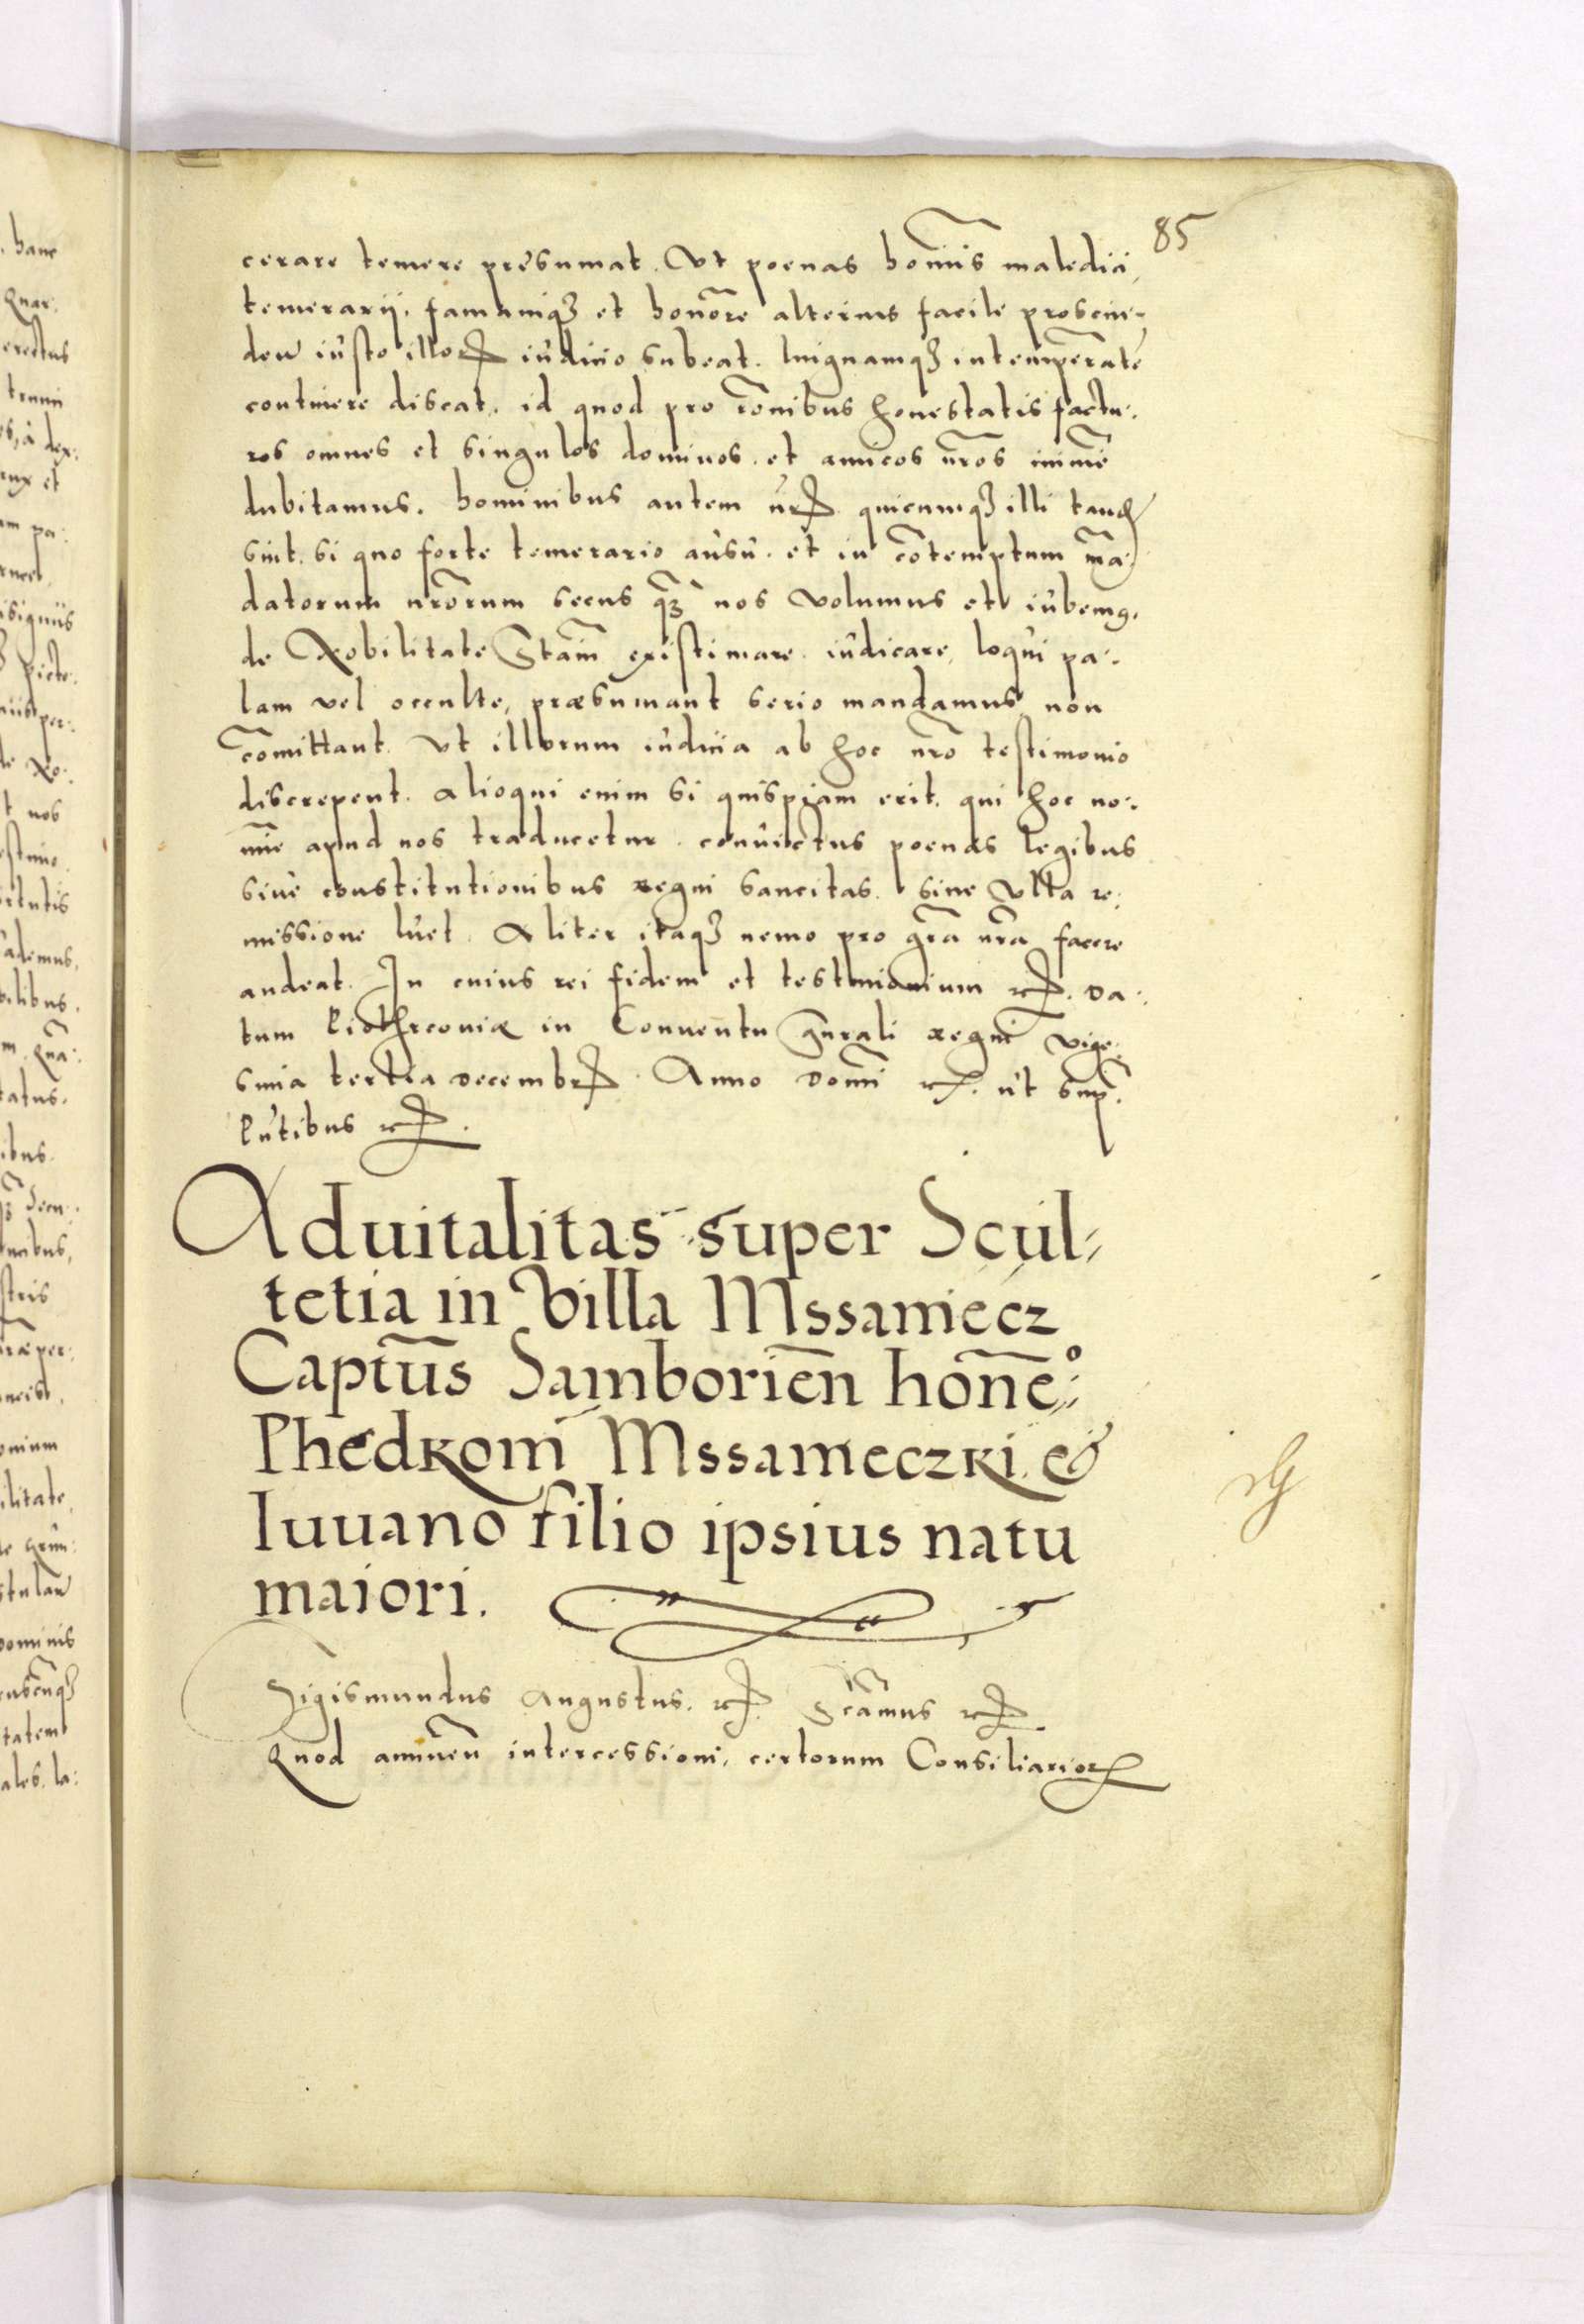 85
cerare temere presumat. Vt poenas hominis maledici,
temerarij, famamq3 et honore alterius facile proscin-
den iusto illor iudicio subeat. linguamq3 intemperate
continere discat, id quod pro ronibus honestatis factu:
ros omnes et singulos dominos et amicos nros minime
dubitamus. hominibus autem nris quicumq3 illi tand
sint, si quo forte temerario ausu et in contemptum ma:
datorum nrorum secus q3 nos volumus et iubemus,
de Nobilitate existimare, iudicare, loqui pa:
lam vel occulte, præsumant serio mandamus non
comittant. Vt illorum iudicia ab hoc nro testimonio
discrepent. Alioqui enim si quispiam erit, qui hoc no:
mine apud nos traducetur, convictus poenas legibus
sive constitutionibus regni sancitas, sine ulla re:
missione luet. Aliter itaq3 nemo pro gra nra facere
audeat. In cuius rei fidem et testimonium etc. Da:
tum Piothrcoviæ in Conventu gnrali regni vige:
sima tertia Decembr. Anno Domi etc. ut sup.
Pntibus etc.
Aduitalitas super Scul-
tetia in Villa Mssaniecz
Captus Samborien hone:
Phedkom Mssanieczki, &
Iuuano filio ipsius natu
maiori.
Sigismundus Augustus, etc. Scamus etc.
Quod annuen intercessioni, certorum Consiliarior